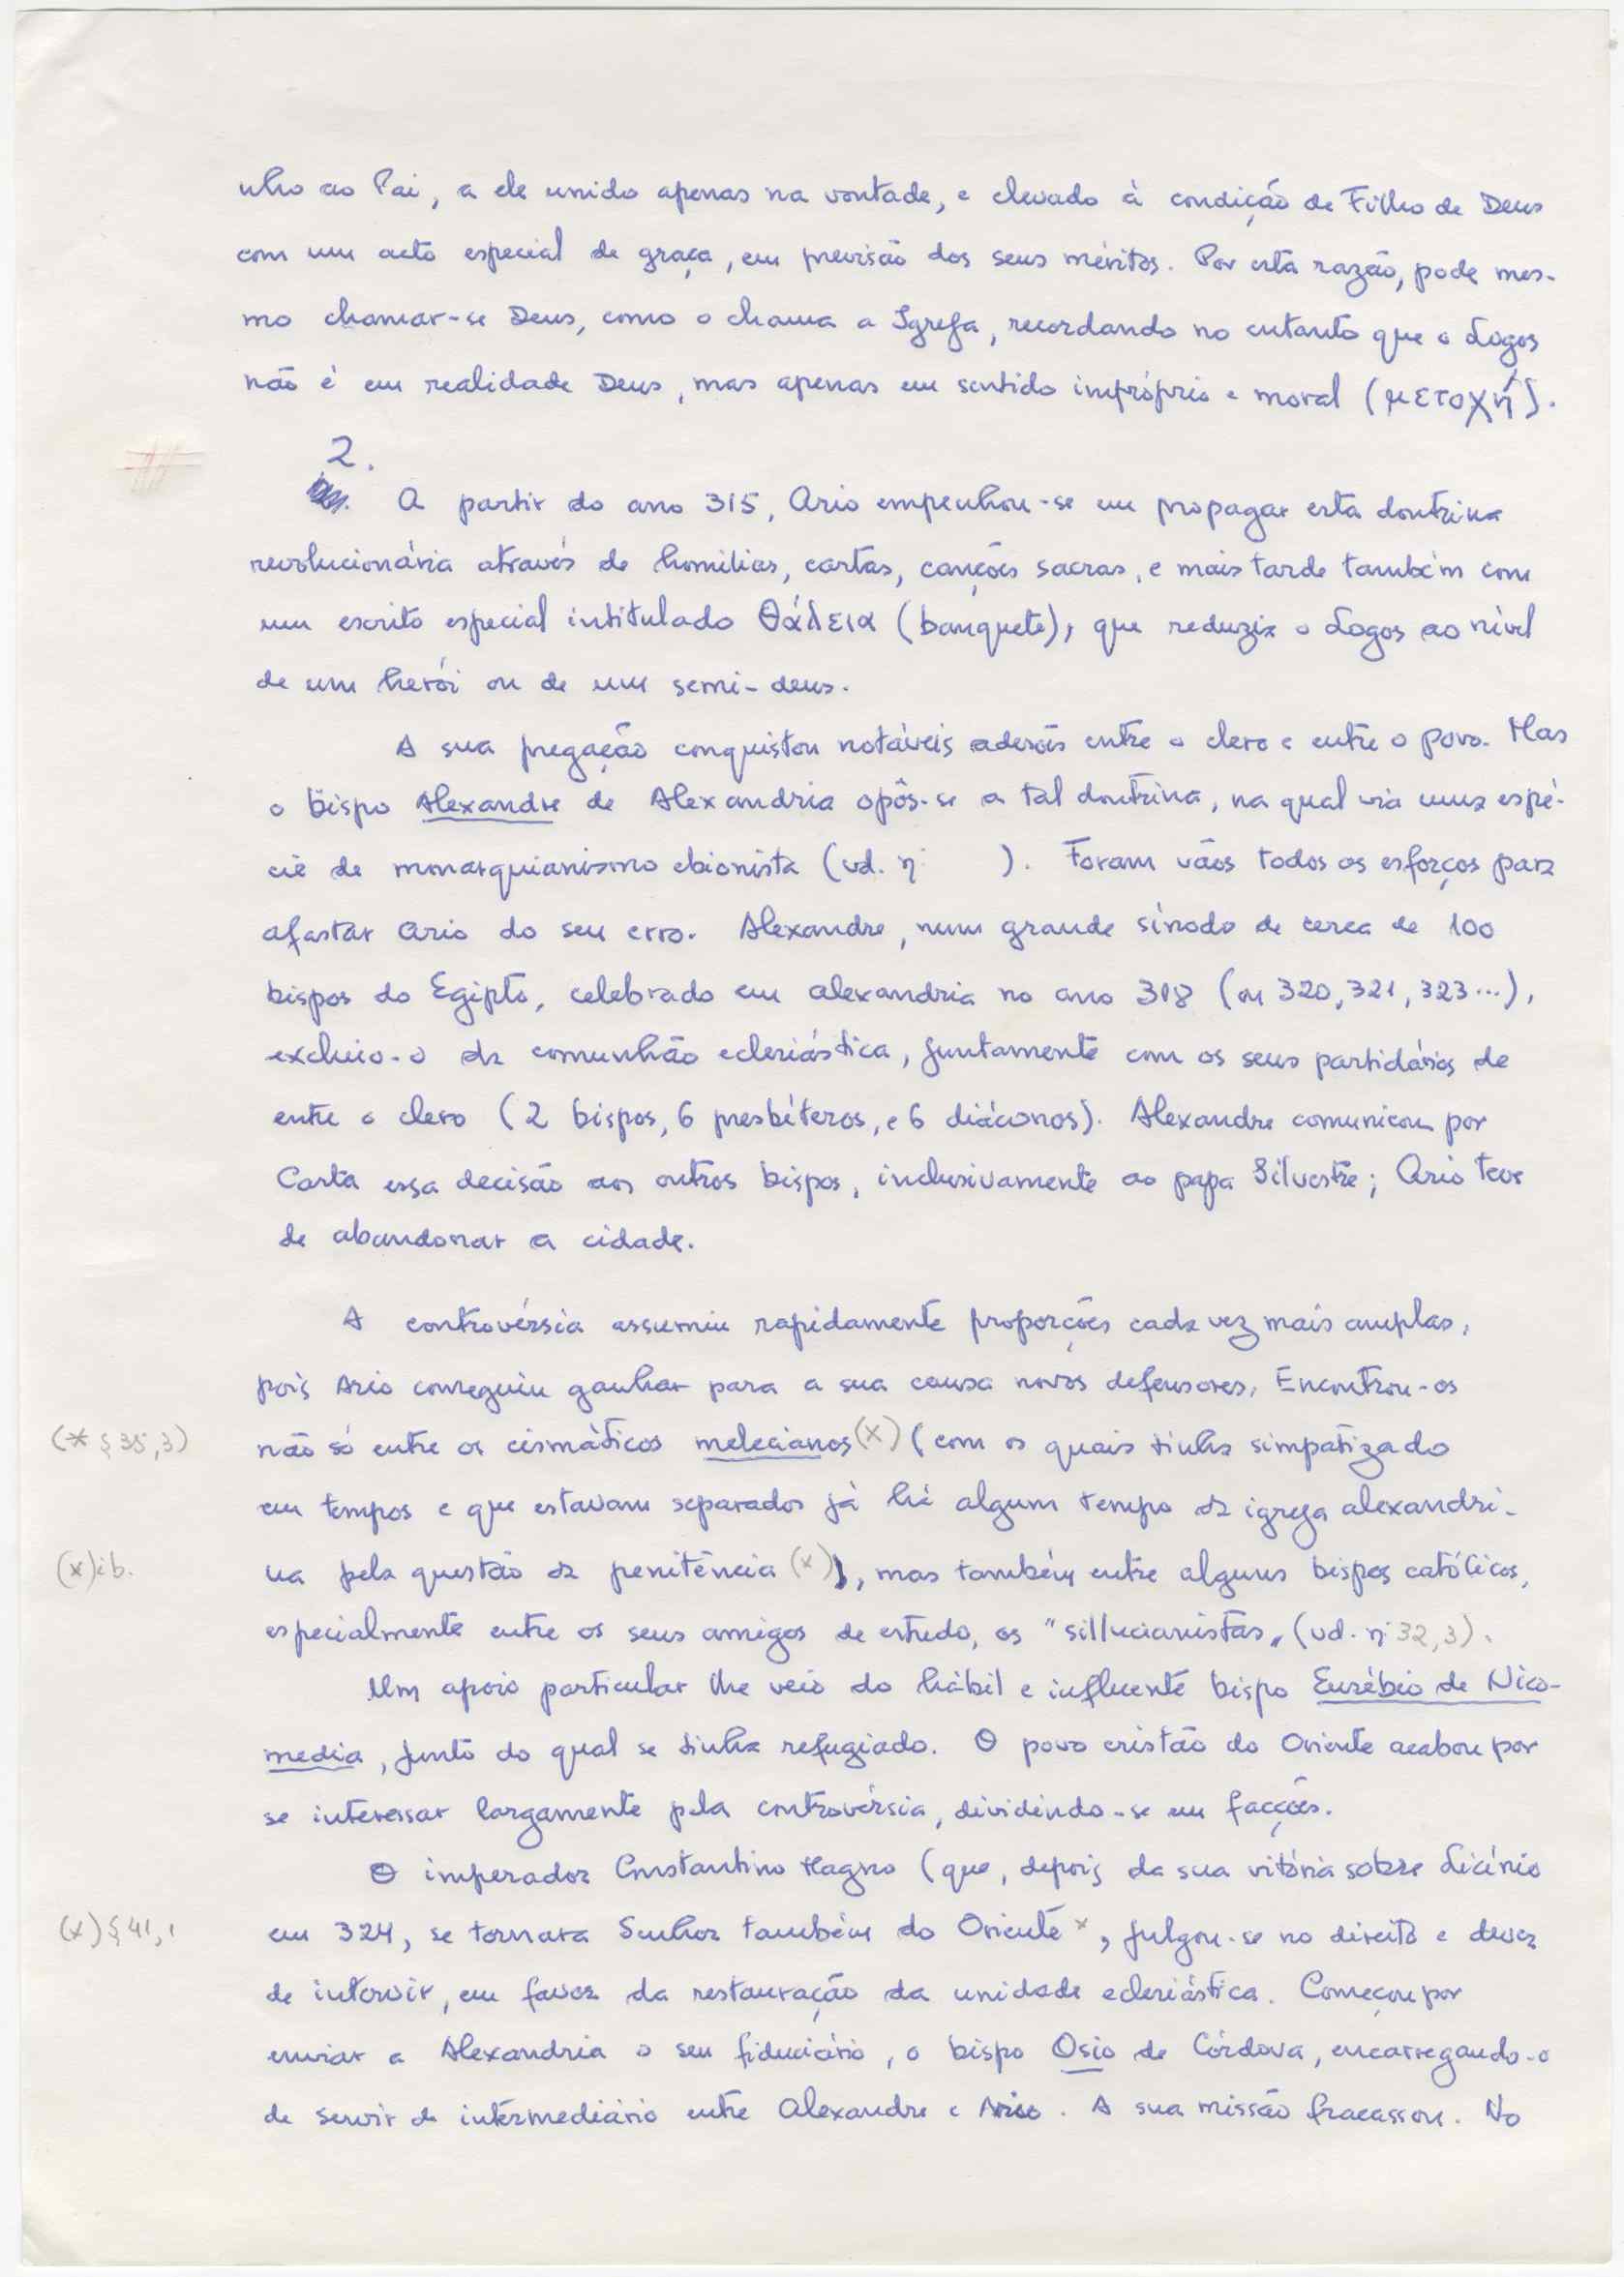 nho ao Pai, a ele unido apenas na vontade, e elevado à condição de Filho de Deus
com um acto especial de graça, em previsão dos seus méritos. Por esta razão, pode mes-
mo chamar-se Deus, como o chama a Igreja, recordando no entanto que o Logos
não é em realidade Deus, mas apenas em sentido impróprio e moral (μετοχή).
2.
A partir do ano 315, Ario empenhou-se em propagar esta doutrina
revolucionária através de homilias, cartas, canções sacras, e mais tarde também com
um escrito especial intitulado Θάλεια (banquete), que reduzia o Logos ao nível
de um herói ou de um semi-deus.
A sua pregação conquistou notáveis adesões entre o clero e entre o povo. Mas
o bispo Alexandre de Alexandria opôs-se a tal doutrina, na qual via uma espé-
cie de monarquianismo ebionista (vd. nº ). Foram vãos todos os esforços para
afastar Ario do seu erro. Alexandre, num grande sínodo de cerca de 100
bispos do Egipto, celebrado em Alexandria no ano 318 (ou 320, 321, 323...),
excluiu-o da comunhão eclesiástica, juntamente com os seus partidários de
entre o clero (2 bispos, 6 presbíteros, e 6 diáconos). Alexandre comunicou por
Carta essa decisão aos outros bispos, inclusivamente ao papa Silvestre; Ario teve
de abandonar a cidade.
A controvérsia assumiu rapidamente proporções cada vez mais amplas,
pois Ario conseguiu ganhar para a sua causa novos defensores. Encontrou-os
(* § 35,3) não só entre os cismáticos melecianos (x) (com os quais tinha simpatizado
em tempos e que estavam separados já há algum tempo da igreja alexandri-
(x) ib. na pela questão da penitência (x)), mas também entre alguns bispos católicos,
especialmente entre os seus amigos de estudo, os "sillucianistas" (vd. nº 32,3).
Um apoio particular lhe veio do hábil e influente bispo Eusébio de Nico-
media, junto do qual se tinha refugiado. O povo cristão do Oriente acabou por
se interessar largamente pela controvérsia, dividindo-se em facções.
O imperador Constantino Magno (que, depois da sua vitória sobre Licínio
(x) § 41,1 em 324, se tornara Senhor também do Oriente x, julgou-se no direito e dever
de intervir, em favor da restauração da unidade eclesiástica. Começou por
enviar a Alexandria o seu fiduciário, o bispo Osio de Córdova, encarregando-o
de servir de intermediário entre Alexandre e Ario. A sua missão fracassou. No